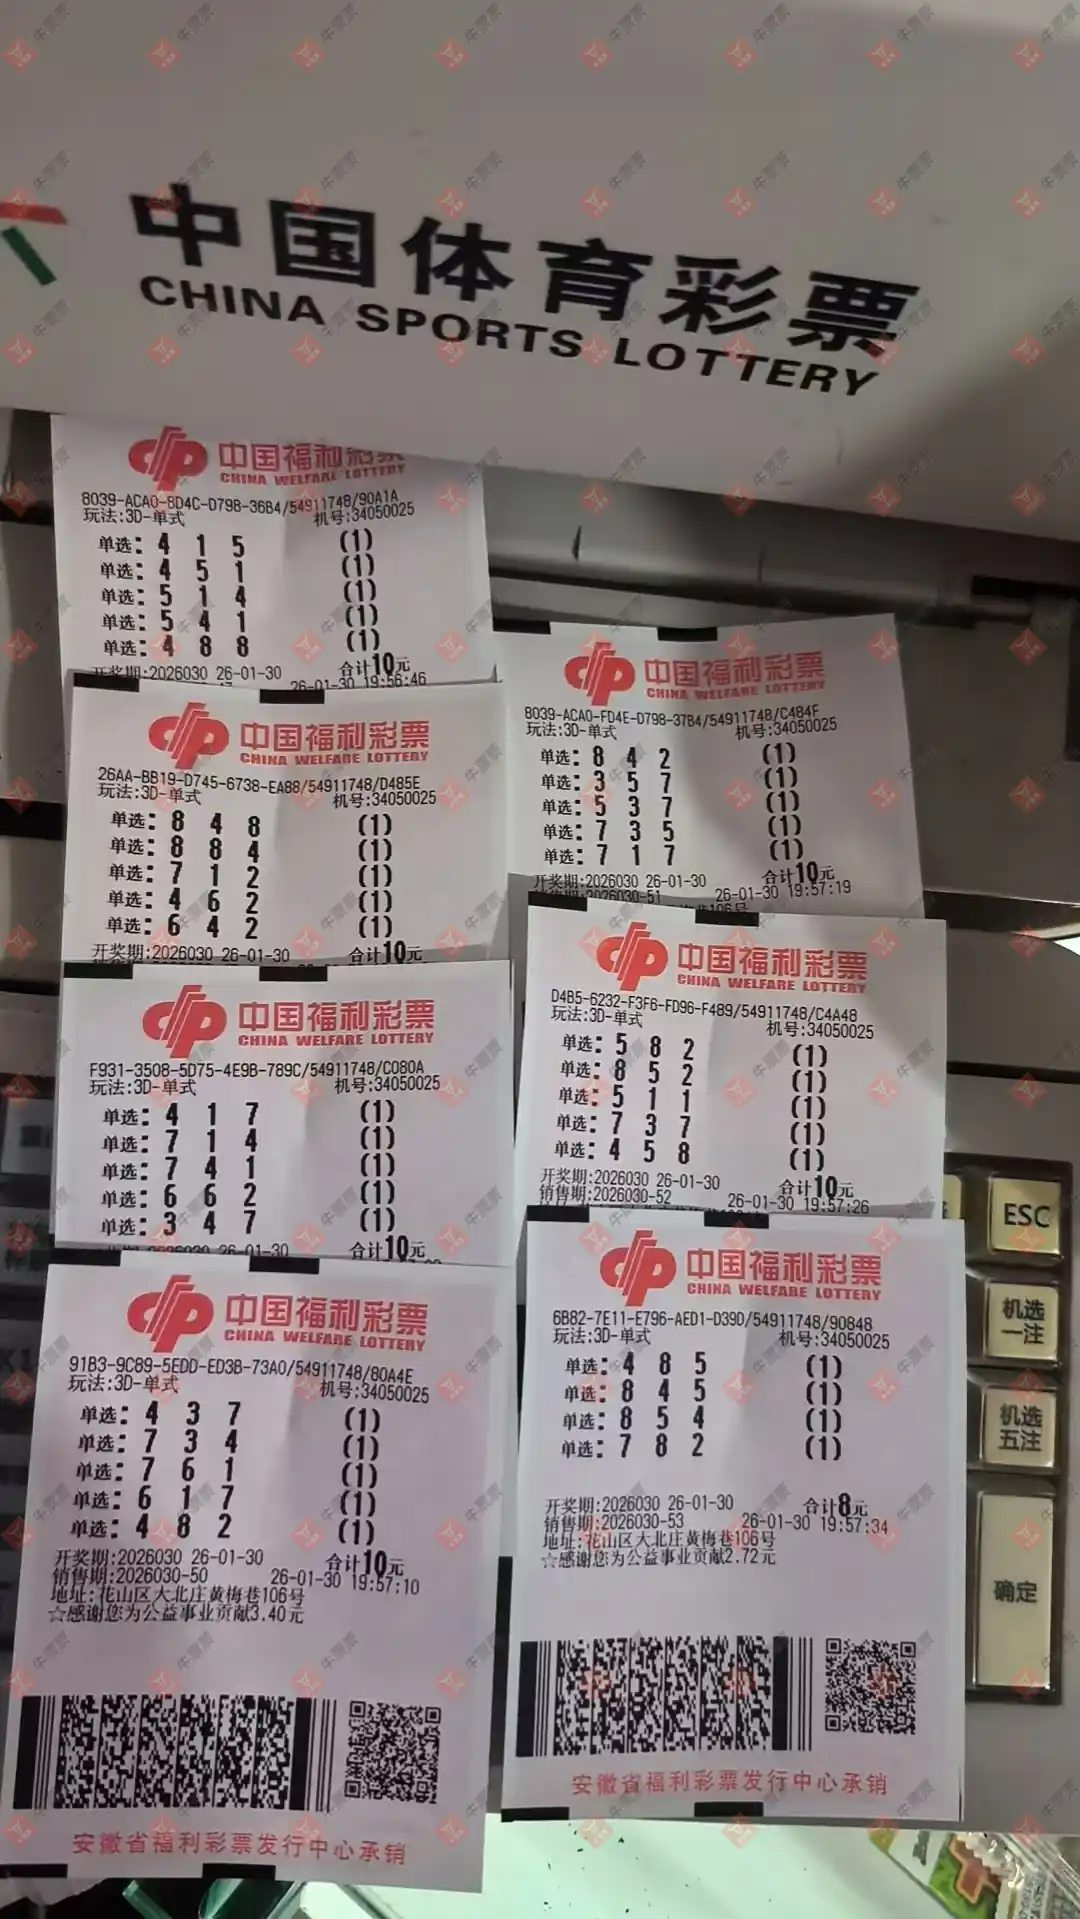 中国体育彩票
CHINA SPORTS LOTTERY
中国福利彩票
CHINA WELFARE LOTTERY
8039-ACA0-8D4C-D798-36B4/54911748/90A1A
玩法:3D-单式 机号:34050025
单选: 4 1 5 (1)
单选: 4 5 1 (1)
单选: 5 1 4 (1)
单选: 5 4 1 (1)
单选: 4 8 8 (1)
开奖期:2026030 26-01-30 合计10元
26-01-30 19:56:46
中国福利彩票
CHINA WELFARE LOTTERY
26AA-BB19-D745-6738-EA88/54911748/D485E
玩法:3D-单式 机号:34050025
单选: 8 4 8 (1)
单选: 8 8 4 (1)
单选: 7 1 2 (1)
单选: 4 6 2 (1)
单选: 6 4 2 (1)
开奖期:2026030 26-01-30 合计10元
中国福利彩票
CHINA WELFARE LOTTERY
F931-3508-5D75-4E9B-789C/54911748/C080A
玩法:3D-单式 机号:34050025
单选: 4 1 7 (1)
单选: 7 1 4 (1)
单选: 7 4 1 (1)
单选: 6 6 2 (1)
单选: 3 4 7 (1)
26-01-30 合计10元
中国福利彩票
CHINA WELFARE LOTTERY
91B3-9C89-5EDD-ED3B-73A0/54911748/80A4E
玩法:3D-单式 机号:34050025
单选: 4 3 7 (1)
单选: 7 3 4 (1)
单选: 7 6 1 (1)
单选: 6 1 7 (1)
单选: 4 8 2 (1)
开奖期:2026030 26-01-30 合计10元
销售期:2026030-50 26-01-30 19:57:10
地址:花山区大北庄黄梅巷106号
☆感谢您为公益事业贡献3.40元
安徽省福利彩票发行中心承销
中国福利彩票
CHINA WELFARE LOTTERY
8039-ACA0-FD4E-D798-37B4/54911748/C484F
玩法:3D-单式 机号:34050025
单选: 8 4 2 (1)
单选: 3 5 7 (1)
单选: 5 3 7 (1)
单选: 7 3 5 (1)
单选: 7 1 7 (1)
开奖期:2026030 26-01-30 合计10元
销售期:2026030-51 26-01-30 19:57:19
中国福利彩票
CHINA WELFARE LOTTERY
D4B5-6232-F3F6-FD96-F489/54911748/C4A48
玩法:3D-单式 机号:34050025
单选: 5 8 2 (1)
单选: 8 5 2 (1)
单选: 5 1 1 (1)
单选: 7 3 7 (1)
单选: 4 5 8 (1)
开奖期:2026030 26-01-30 合计10元
销售期:2026030-52 26-01-30 19:57:26
中国福利彩票
CHINA WELFARE LOTTERY
6B82-7E11-E796-AED1-D39D/54911748/90848
玩法:3D-单式 机号:34050025
单选: 4 8 5 (1)
单选: 8 4 5 (1)
单选: 8 5 4 (1)
单选: 7 8 2 (1)
开奖期:2026030 26-01-30 合计8元
销售期:2026030-53 26-01-30 19:57:34
地址:花山区大北庄黄梅巷106号
☆感谢您为公益事业贡献2.72元
安徽省福利彩票发行中心承销
ESC
机选
一注
机选
五注
确定
牛票票